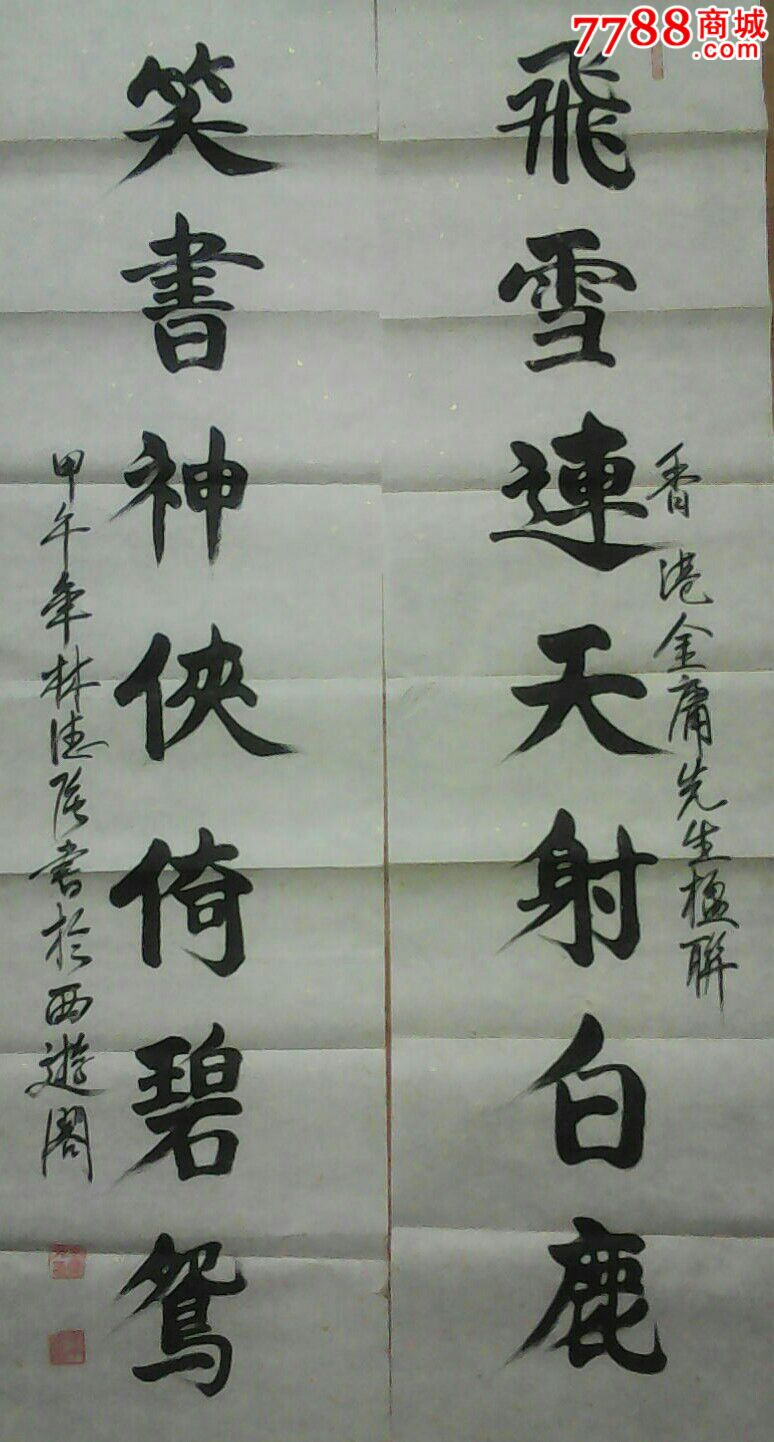 飛雪連天射白鹿
香港金庸先生楹聯
笑書神俠倚碧鴛
甲午年林德
書於西遊閣
7788商城
.com